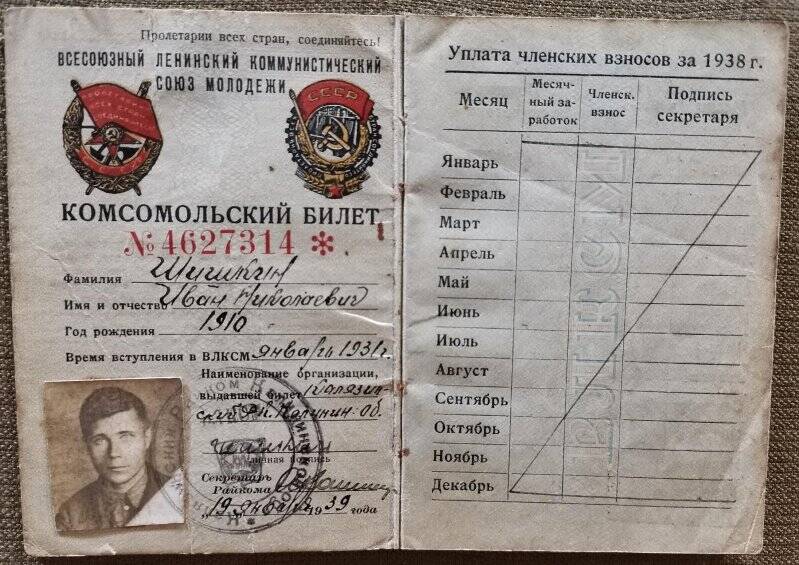 Пролетарии всех стран, соединяйтесь!
ВСЕСОЮЗНЫЙ ЛЕНИНСКИЙ КОММУНИСТИЧЕСКИЙ
СОЮЗ МОЛОДЕЖИ
СССР
КОМСОМОЛЬСКИЙ БИЛЕТ
№ 4627314 *
Фамилия Шишкин
Имя и отчество Иван Николаевич
Год рождения 1910
Время вступления в ВЛКСМ январь 1931г.
Наименование организации,
выдавшей билет Калязин-
ский РК Калинин. об.
Личная подпись
Секретарь
Райкома
"19" января 1939 года
Уплата членских взносов за 1938 г.
Месяц Месяч-ный за-работок Членск. взнос Подпись секретаря
Январь
Февраль
Март
Апрель
Май
Июнь
Июль
Август
Сентябрь
Октябрь
Ноябрь
Декабрь
ВЛКСМ